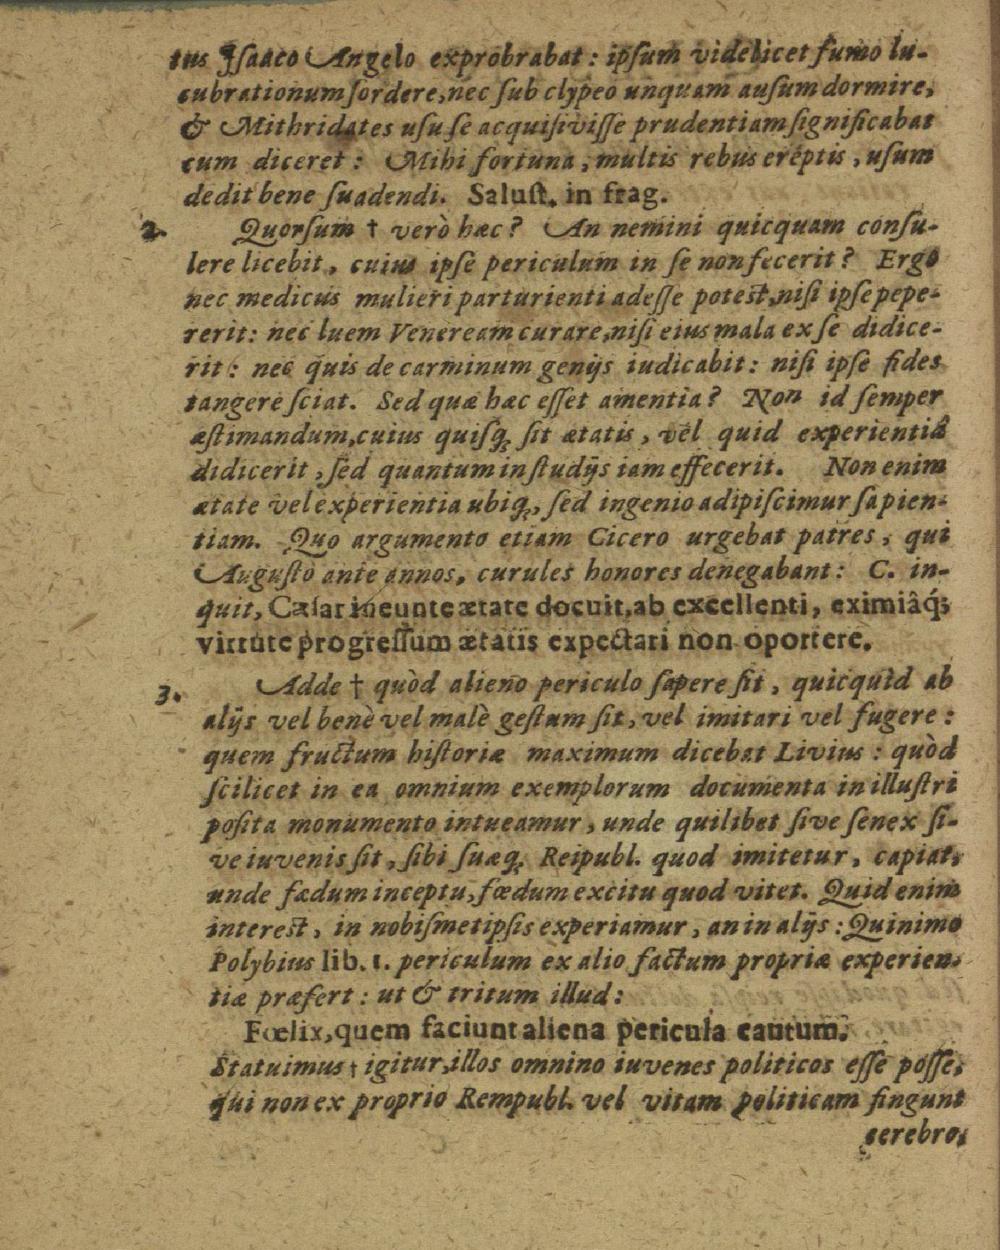 tus Jsaaco Angelo exprobrabat: ipsum videlicet fumo lu-
cubrationum sordere, nec sub clypeo unquam ausum dormire,
& Mithridates usu se acquisivisse prudentiam significabat
cum diceret: Mihi fortuna, multis rebus ereptis, usum
dedit bene suadendi. Salust. in frag.
2. Quorsum † verò hæc? An nemini quicquam consu-
lere licebit, cuius ipse periculum in se non fecerit? Ergo
nec medicus mulieri parturienti adesse potest, nisi ipse pepe-
rerit: nec luem Veneream curare, nisi eius mala ex se didice-
rit: nec quis de carminum genijs iudicabit: nisi ipse fides
tangere sciat. Sed quæ hæc esset amentia? Non id semper
æstimandum, cuius quisq; sit ætatis, vel quid experientiâ
didicerit, sed quantum in studijs iam effecerit. Non enim
ætate vel experientia ubiq;, sed ingenio adipiscimur sapien-
tiam. Quo argumento etiam Cicero urgebat patres, qui
Augusto ante annos, curules honores denegabant: C. in-
quit, Cæsar ineunte ætate docuit, ab excellenti, eximiâq́;
virtute progressum ætatis expectari non oportere.
3. Adde † quòd alieno periculo sapere sit, quicquid ab
alijs vel benè vel malè gestum sit, vel imitari vel fugere:
quem fructum historiæ maximum dicebat Livius: quòd
scilicet in ea omnium exemplorum documenta in illustri
posita monumento intueamur, unde quilibet sive senex si-
ve iuvenis sit, sibi suæq; Reipubl. quod imitetur, capiat,
unde fædum inceptu, fœdum exitu quod vitet. Quid enim
interest, in nobismetipsis experiamur, an in alijs: Quinimo
Polybius lib. 1. periculum ex alio factum propriæ experien-
tiæ præfert: ut & tritum illud:
Fœlix, quem faciunt aliena pericula cautum.
Statuimus † igitur, illos omnino iuvenes politicos esse posse,
qui non ex proprio Rempubl. vel vitam politicam fingunt
cerebro,